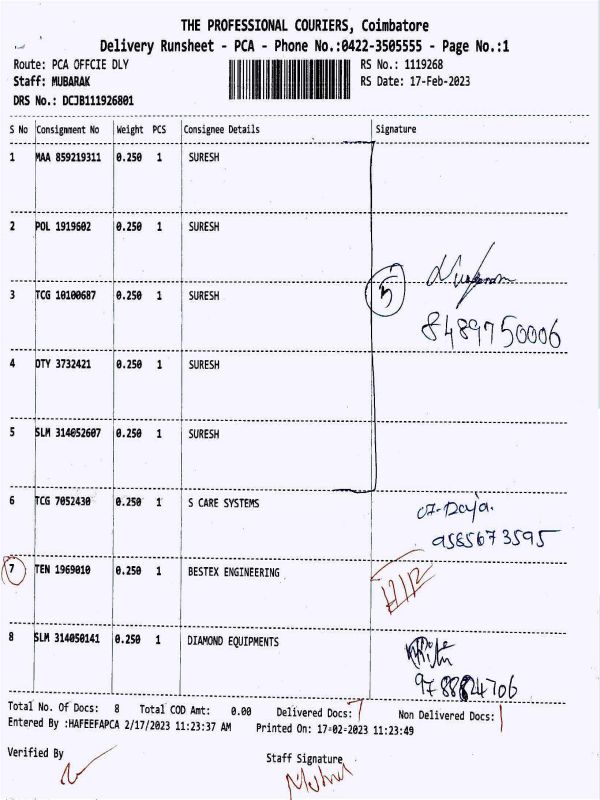 THE PROFESSIONAL COURIERS, Coimbatore
Delivery Runsheet - PCA - Phone No.:0422-3505555 - Page No.:1
Route: PCA OFFCIE DLY RS No.: 1119268
Staff: MUBARAK RS Date: 17-Feb-2023
DRS No.: DCJB111926801
S No Consignment No Weight PCS Consignee Details Signature
1 MAA 859219311 0.250 1 SURESH
2 POL 1919602 0.250 1 SURESH
3 TCG 10100687 0.250 1 SURESH 5
8489750006
4 DTY 3732421 0.250 1 SURESH
5 SLM 314052607 0.250 1 SURESH
6 TCG 7052430 0.250 1 S CARE SYSTEMS
9585673595
7 TEN 1969010 0.250 1 BESTEX ENGINEERING
8 SLM 314050141 0.250 1 DIAMOND EQUIPMENTS
Total No. Of Docs: 8 Total COD Amt: 0.00 Delivered Docs: 7 Non Delivered Docs: 1
Entered By :HAFEEFAPCA 2/17/2023 11:23:37 AM Printed On: 17-02-2023 11:23:49
Verified By Staff Signature